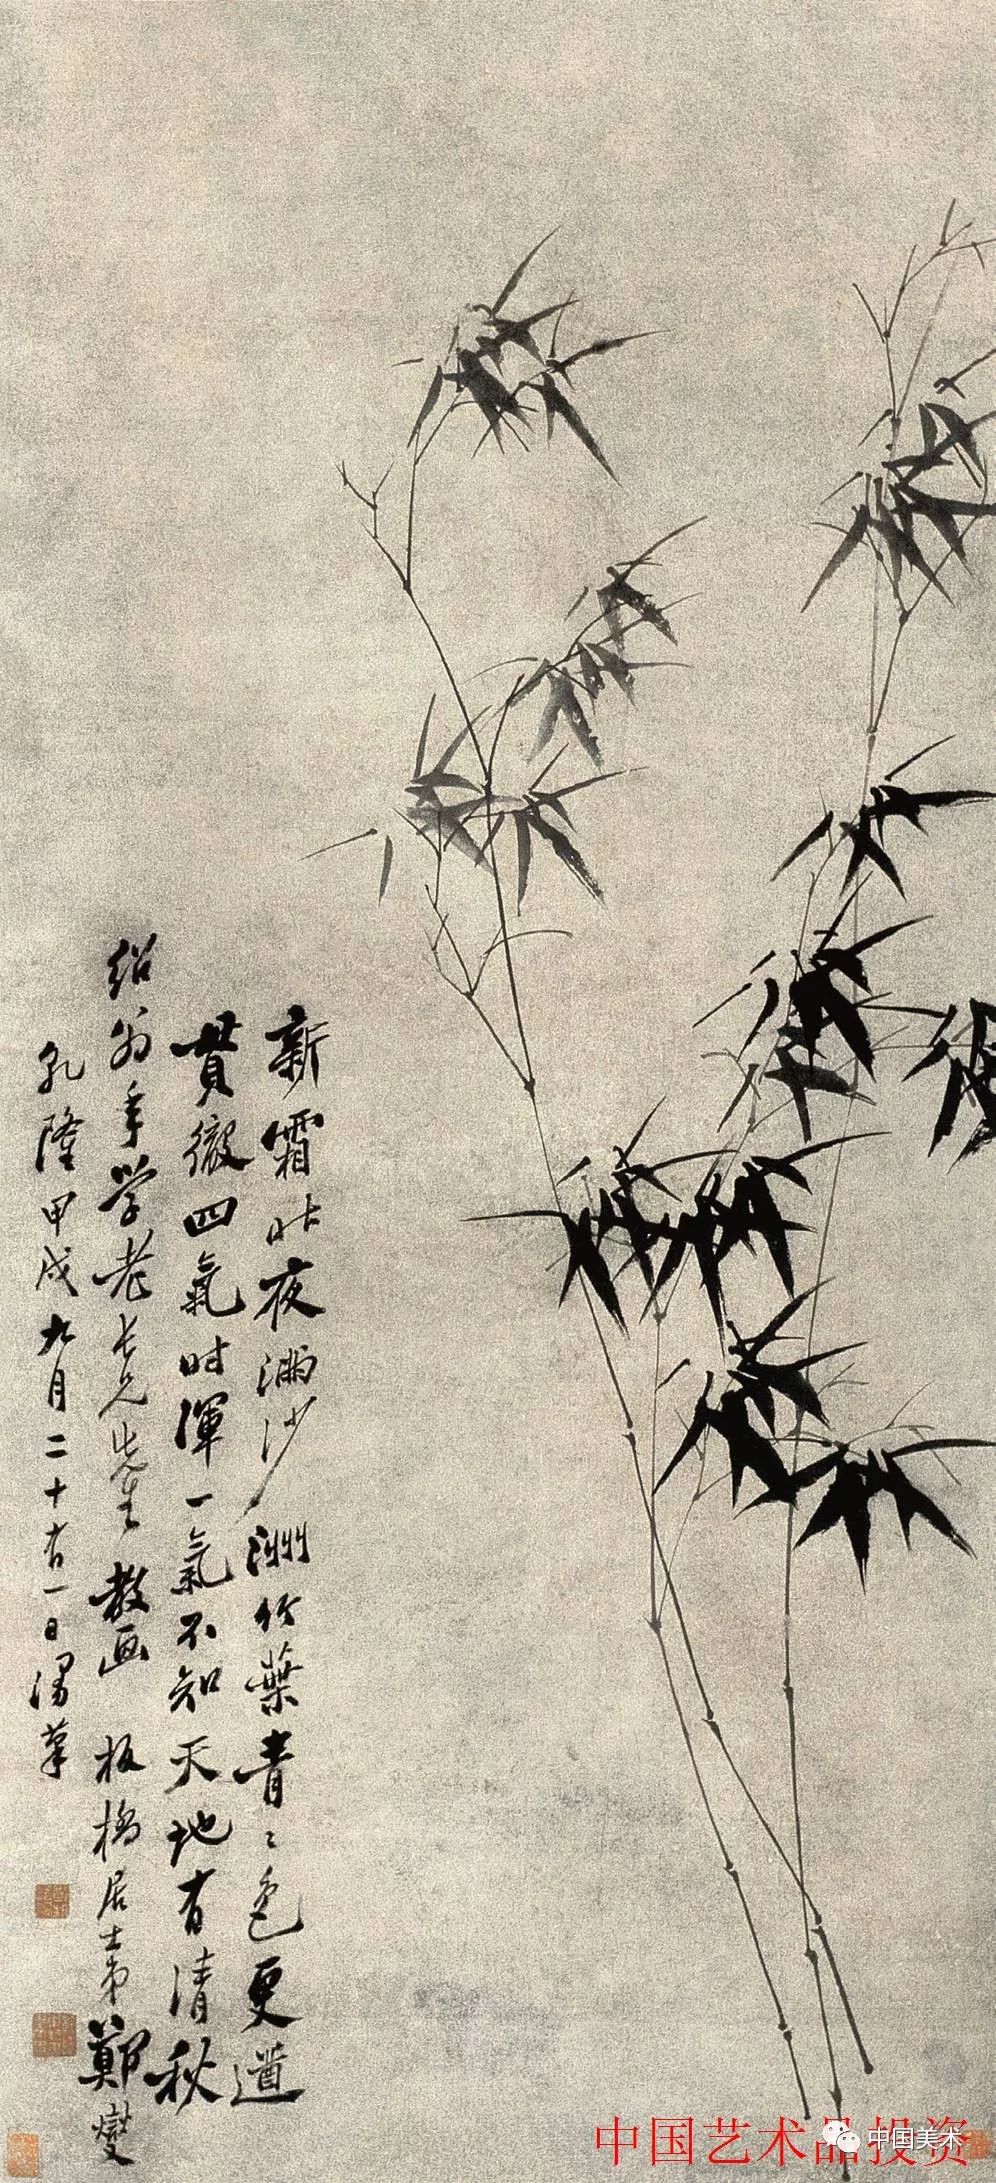 新霜昨夜满沙洲竹葉青〻色更遒
贯徹四氣时渾一氣不知天地有清秋
绍翁年学老长兄先生教画 板橋居士弟鄭燮
乹隆甲戌九月二十有一日漫筆
中国艺术品投资
中国美术